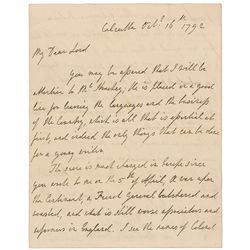 Calcutta Oct.r 16th 1792
My Dear Lord
you may be assured that I will be
attentive to Mr He is placed in a good
line for learning the languages and the business
of the Country, which is all that is essential at
first, and indeed the only things that can be done
for a young writer.
The scene is most changed in Europe since
you wrote to me on the 5th of April. A war upon
the Continent, a French general butchered and
roasted, and what is still worse associations and
reformers in England. I see the names of Colonel